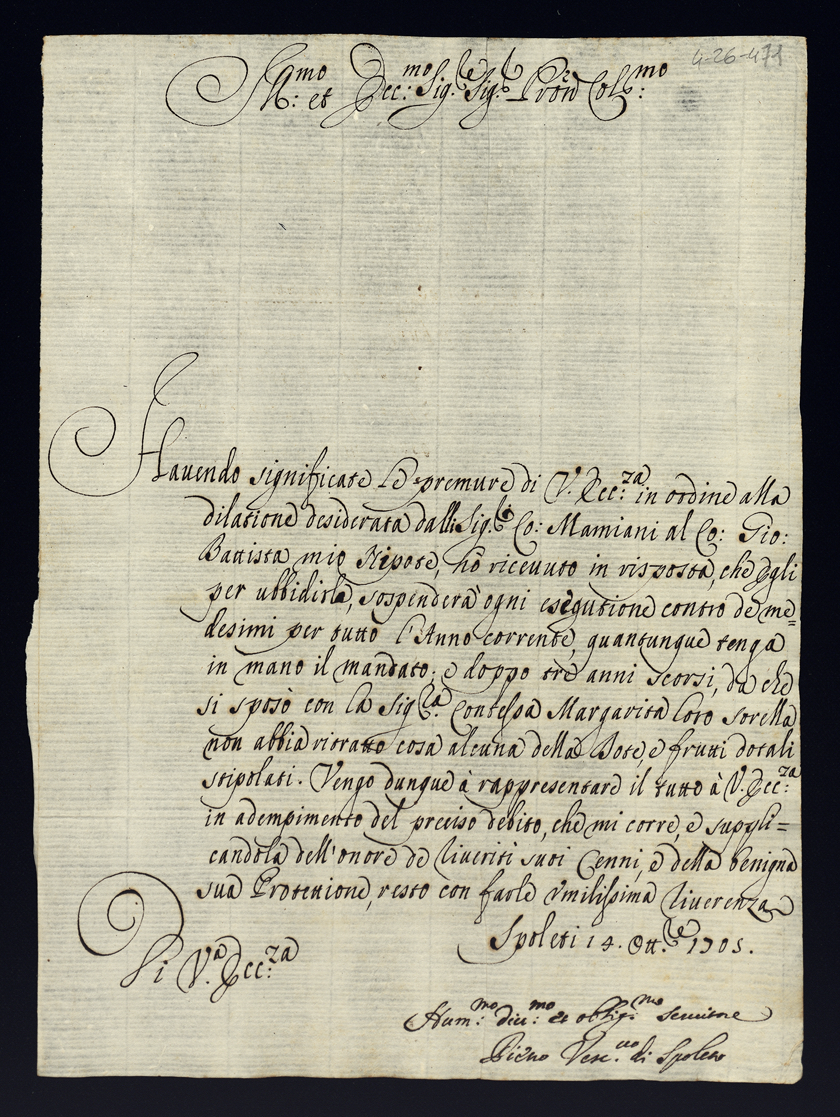 4-26-471
Ill:mo et Ecc:mo Sig:re Sig:re Pron Col:mo
Hauendo significate le premure di V. Ecc:za in ordine alla
dilatione desiderata dalli Sig:ri Co: Mamiani al Co: Gio:
Battista mio Nipote, hò riceuuto in risposta, che Egli
per ubbidirla, sospenderà ogni esegutione contro de me=
desimi per tutto l'Anno corrente, quantunque tenga
in mano il mandato; e doppo trè anni scorsi, da che
si sposò con la Sig:ra Contessa Margarita loro sorella
non abbia ritratto cosa alcuna della Dote, e frutti dotali
stipolati. Vengo dunque à rappresentare il tutto à V. Ecc:za
in adempimento del preciso debito, che mi corre, e suppli=
candola dell'onore de riueriti suoi Cenni, e della benigna
sua Protettione, resto con farle vmilissima riuerenza
Spoleti 14. Ott:re 1705.
Di V:a Ecc:za
Hum:mo diu:mo et oblig:mo seruitore
Vesc:uo di Spoleto